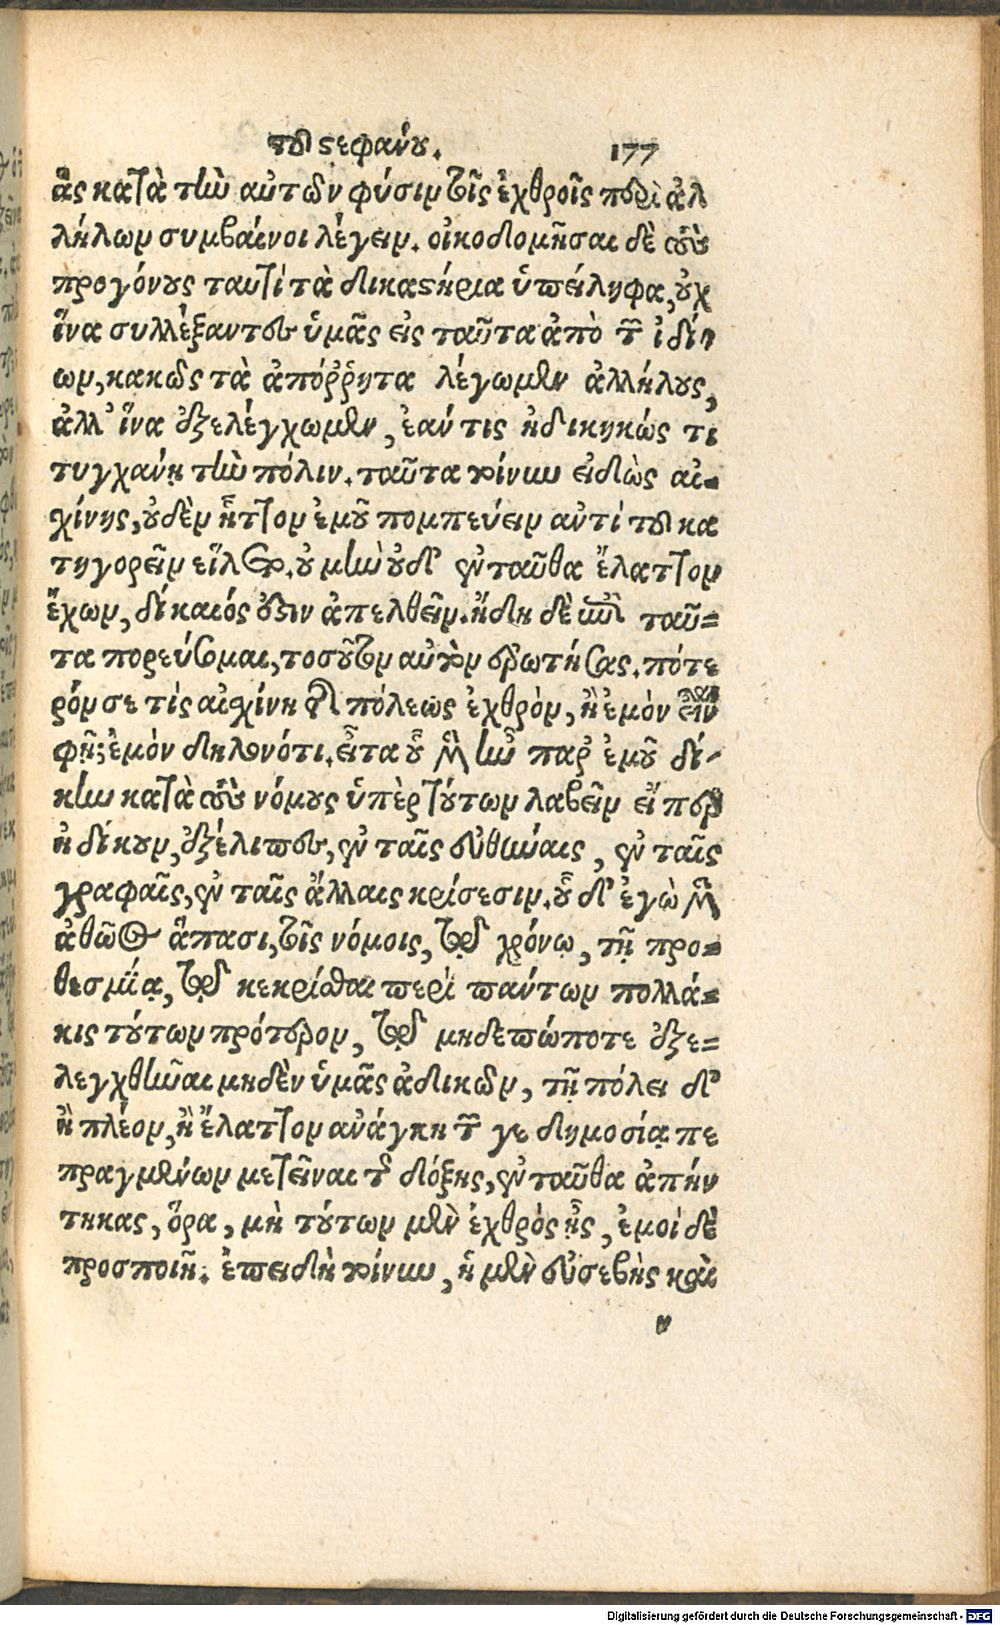 τοῦ στεφάνου. 177
ἃς κατὰ τὴν αὐτῶν φύσιν τοῖς ἐχθροῖς περὶ ἀλ
λήλων συμβαίνοι λέγειν. οἰκοδομῆσαι δὲ τοὺς
προγόνους ταυτὶ τὰ δικαστήρια ὑπείληφα, οὐχ
ἵνα συλλέξαντες ὑμᾶς εἰς ταῦτα ἀπὸ τῶν ἰδί-
ων, κακῶς τὰ ἀπόῤῥητα λέγωμεν ἀλλήλους,
ἀλλ' ἵνα ἐξελέγχωμεν, ἐάν τις ἠδικηκώς τι
τυγχάνῃ τὴν πόλιν. ταῦτα τοίνυν εἰδὼς αἰ-
χίνης, οὐδὲν ἧττον ἐμοῦ πομπεύειν ἀντὶ τοῦ κα
τηγορεῖν εἵλετο. οὐ μὴν οὐδ' ἐνταῦθα ἔλαττον
ἔχων, δίκαιός ἐστιν ἀπελθεῖν. ἤδη δὲ ἐπὶ ταῦ-
τα πορεύσομαι, τοσοῦτον αὐτὸν ἐρωτήσας. πότε
ρόν σε τίς αἰσχίνη τῆς πόλεως ἐχθρὸν, ἢ ἐμὸν εἶναι
φῇ; ἐμὸν δηλονότι. εἶτα οὗ μὲν ἦν παρ' ἐμοῦ δί-
κην κατὰ τοὺς νόμους ὑπὲρ τούτων λαβεῖν εἴπερ
ἠδίκουν, ἐξέλιπες, ἐν ταῖς εὐθύναις, ἐν ταῖς
γραφαῖς, ἐν ταῖς ἄλλαις κρίσεσιν. οὗ δ' ἐγὼ μὲν
ἀθῷος ἅπασι, τοῖς νόμοις, τῷ χρόνῳ, τῇ προ-
θεσμίᾳ, τῷ κεκρίσθαι περὶ πάντων πολλά-
κις τούτων πρότερον, τῷ μηδεπώποτε ἐξε-
λεγχθῆναι μηδὲν ὑμᾶς ἀδικῶν, τῇ πόλει δ'
ἢ πλέον, ἢ ἔλαττον ἀνάγκη τῶν γε δημοσίᾳ πε
πραγμένων μετεῖναι τῆς δόξης, ἐνταῦθα ἀπήν
τηκας, ὅρα, μὴ τούτων μὲν ἐχθρὸς ᾖς, ἐμοὶ δὲ
προσποιῇ. ἐπειδὴ τοίνυν, ἡ μὲν εὐσεβὴς καὶ
Digitalisierung gefördert durch die Deutsche Forschungsgemeinschaft - DFG